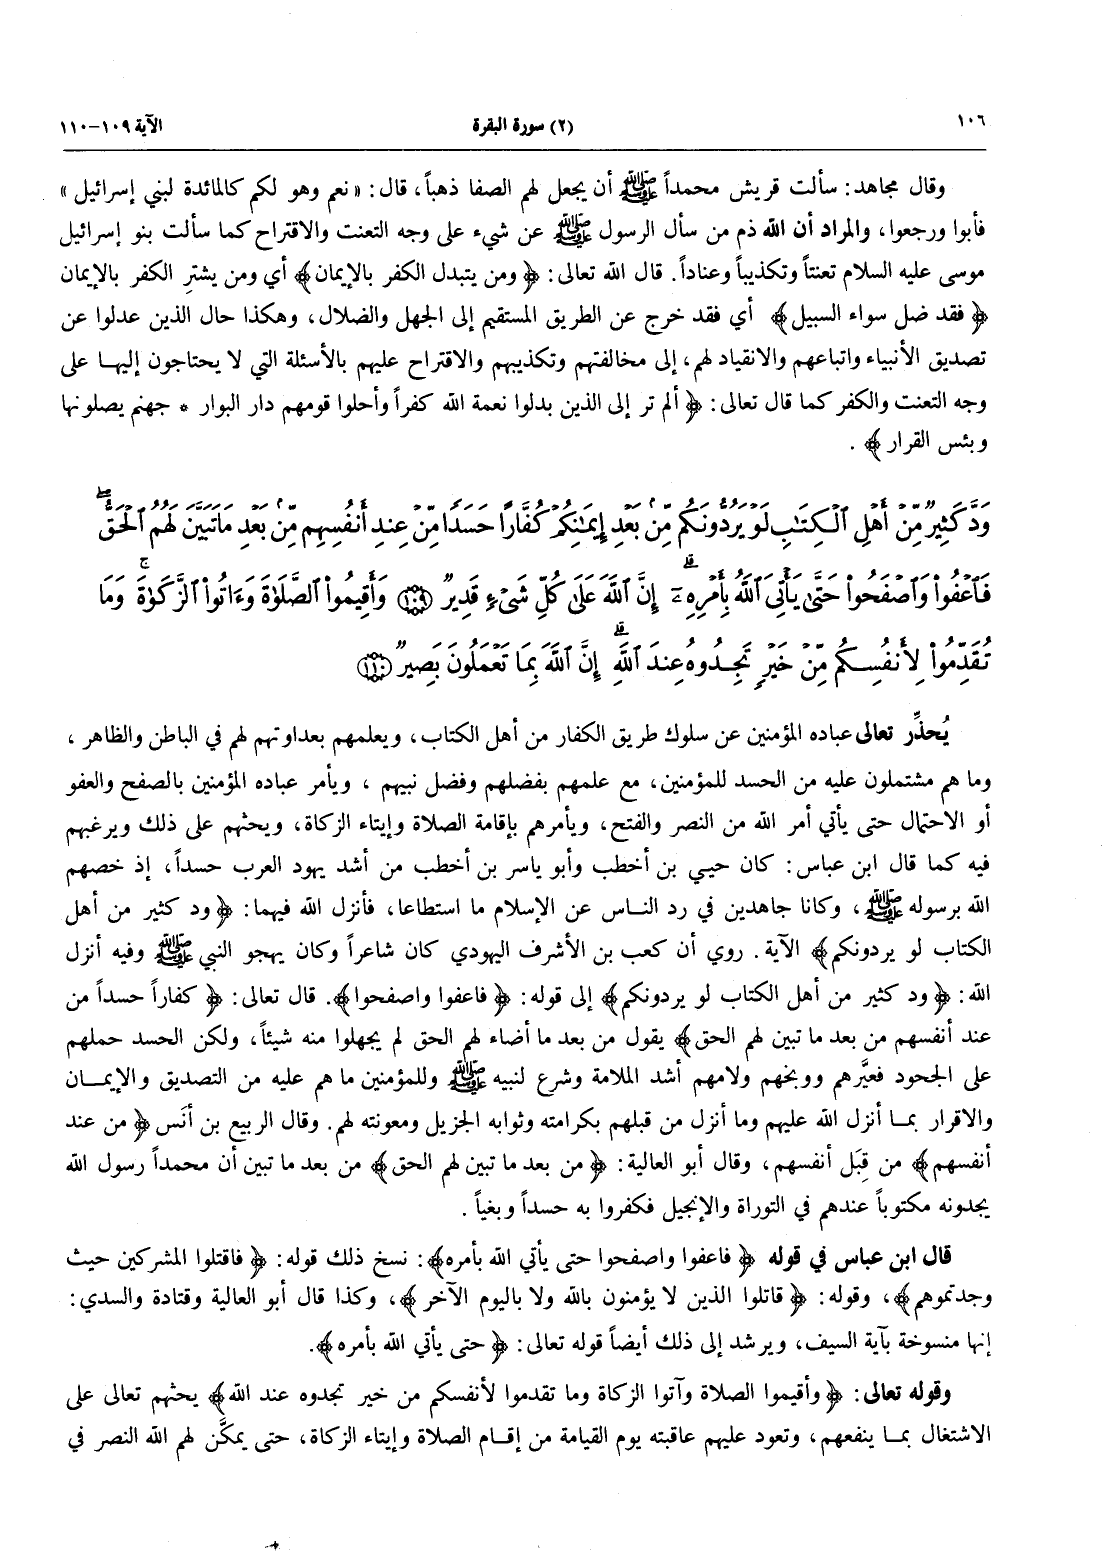 ١٠٦ (٢) سورة البقرة الآية ١٠٩-١١٠
وقال مجاهد: سألت قريش محمداً ﷺ أن يجعل لهم الصفا ذهباً، قال: «نعم وهو لكم كالمائدة لبني إسرائيل»
فأبوا ورجعوا، والمراد أن الله ذم من سأل الرسول ﷺ عن شيء على وجه التعنت والاقتراح كما سألت بنو إسرائيل
موسى عليه السلام تعنتاً وتكذيباً وعناداً. قال الله تعالى: ﴿ومن يتبدل الكفر بالإيمان﴾ أي ومن يشترِ الكفر بالإيمان
﴿فقد ضل سواء السبيل﴾ أي فقد خرج عن الطريق المستقيم إلى الجهل والضلال، وهكذا حال الذين عدلوا عن
تصديق الأنبياء واتباعهم والانقياد لهم، إلى مخالفتهم وتكذيبهم والاقتراح عليهم بالأسئلة التي لا يحتاجون إليها على
وجه التعنت والكفر كما قال تعالى: ﴿ألم تر إلى الذين بدلوا نعمة الله كفراً وأحلوا قومهم دار البوار * جهنم يصلونها
وبئس القرار﴾.
وَدَّ كَثِيرٌ مِّنْ أَهْلِ ٱلْكِتَٰبِ لَوْ يَرُدُّونَكُم مِّنۢ بَعْدِ إِيمَٰنِكُمْ كُفَّارًا حَسَدًا مِّنْ عِندِ أَنفُسِهِم مِّنۢ بَعْدِ مَا تَبَيَّنَ لَهُمُ ٱلْحَقُّ ۖ
فَٱعْفُوا۟ وَٱصْفَحُوا۟ حَتَّىٰ يَأْتِىَ ٱللَّهُ بِأَمْرِهِۦٓ ۗ إِنَّ ٱللَّهَ عَلَىٰ كُلِّ شَىْءٍ قَدِيرٌ ﴿١٠٩﴾ وَأَقِيمُوا۟ ٱلصَّلَوٰةَ وَءَاتُوا۟ ٱلزَّكَوٰةَ ۚ وَمَا
تُقَدِّمُوا۟ لِأَنفُسِكُم مِّنْ خَيْرٍ تَجِدُوهُ عِندَ ٱللَّهِ ۗ إِنَّ ٱللَّهَ بِمَا تَعْمَلُونَ بَصِيرٌ ﴿١١٠﴾
يُحذِّر تعالى عباده المؤمنين عن سلوك طريق الكفار من أهل الكتاب، ويعلمهم بعداوتهم لهم في الباطن والظاهر،
وما هم مشتملون عليه من الحسد للمؤمنين، مع علمهم بفضلهم وفضل نبيهم، ويأمر عباده المؤمنين بالصفح والعفو
أو الاحتمال حتى يأتي أمر الله من النصر والفتح، ويأمرهم بإقامة الصلاة وإيتاء الزكاة، ويحثهم على ذلك ويرغبهم
فيه كما قال ابن عباس: كان حيي بن أخطب وأبو ياسر بن أخطب من أشد يهود العرب حسداً، إذ خصهم
الله برسوله ﷺ، وكانا جاهدين في رد الناس عن الإسلام ما استطاعا، فأنزل الله فيهما: ﴿ود كثير من أهل
الكتاب لو يردونكم﴾ الآية. روي أن كعب بن الأشرف اليهودي كان شاعراً وكان يهجو النبي ﷺ وفيه أنزل
الله: ﴿ود كثير من أهل الكتاب لو يردونكم﴾ إلى قوله: ﴿فاعفوا واصفحوا﴾. قال تعالى: ﴿كفاراً حسداً من
عند أنفسهم من بعد ما تبين لهم الحق﴾ يقول من بعد ما أضاء لهم الحق لم يجهلوا منه شيئاً، ولكن الحسد حملهم
على الجحود فعيَّرهم ووبخهم ولامهم أشد الملامة وشرع لنبيه ﷺ وللمؤمنين ما هم عليه من التصديق والإيمان
والاقرار بما أنزل الله عليهم وما أنزل من قبلهم بكرامته وثوابه الجزيل ومعونته لهم. وقال الربيع بن أنَس ﴿من عند
أنفسهم﴾ من قِبَل أنفسهم، وقال أبو العالية: ﴿من بعد ما تبين لهم الحق﴾ من بعد ما تبين أن محمداً رسول الله
يجدونه مكتوباً عندهم في التوراة والإنجيل فكفروا به حسداً وبغياً.
قال ابن عباس في قوله ﴿فاعفوا واصفحوا حتى يأتي الله بأمره﴾: نسخ ذلك قوله: ﴿فاقتلوا المشركين حيث
وجدتموهم﴾، وقوله: ﴿قاتلوا الذين لا يؤمنون بالله ولا باليوم الآخر﴾، وكذا قال أبو العالية وقتادة والسدي:
إنها منسوخة بآية السيف، ويرشد إلى ذلك أيضاً قوله تعالى: ﴿حتى يأتي الله بأمره﴾.
وقوله تعالى: ﴿وأقيموا الصلاة وآتوا الزكاة وما تقدموا لأنفسكم من خير تجدوه عند الله﴾ يحثهم تعالى على
الاشتغال بما ينفعهم، وتعود عليهم عاقبته يوم القيامة من إقام الصلاة وإيتاء الزكاة، حتى يمكَّن لهم الله النصر في